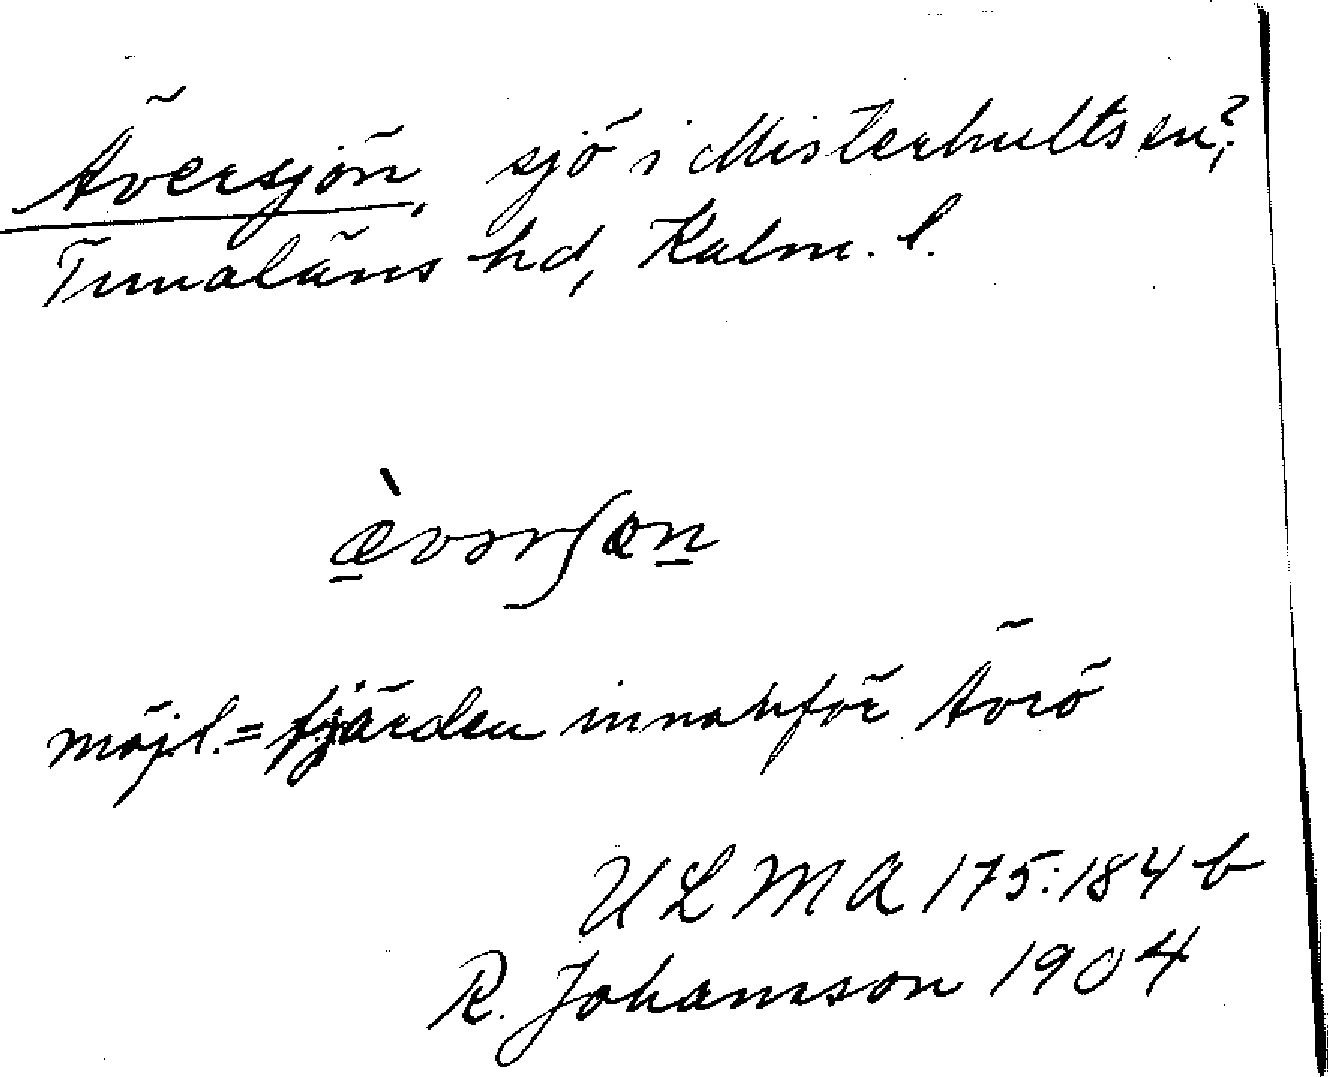 Äversjön, sjö i Misterhults sn?,
Tunaläns hd, Kalm. l.
æ̠̀vərʃœn̠
möjl. = fjärden innanför Ävrö
ULMA 175:184 b
R. Johansson 1904